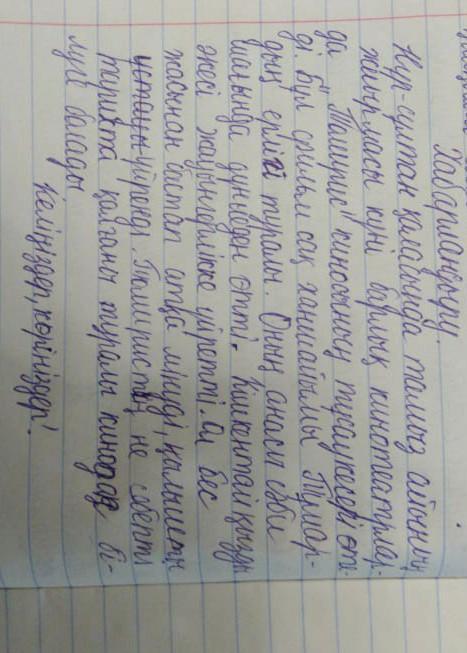 Хабарландыру.
Нұр-сұлтан қаласында тамыз айының
жиырмасы күні барлық кинотеатрлар-
да "Томирис" киносының тұсаукесері өте-
ді. Бұл фильм сақ ханшайымы Тұмар-
дың ерлігі туралы. Оның анасы сәби
шағында дүниеден өтті. Кішкентай қызды
әкесі жауынгерлікке үйретті. Ол бес
жасынан бастап атқа мінуді, қылышты
ұстауды үйренді. Томиристің не себепті
тарихта қалғаны туралы кинодан бі-
луге болады
Келіңіздер, көріңіздер!